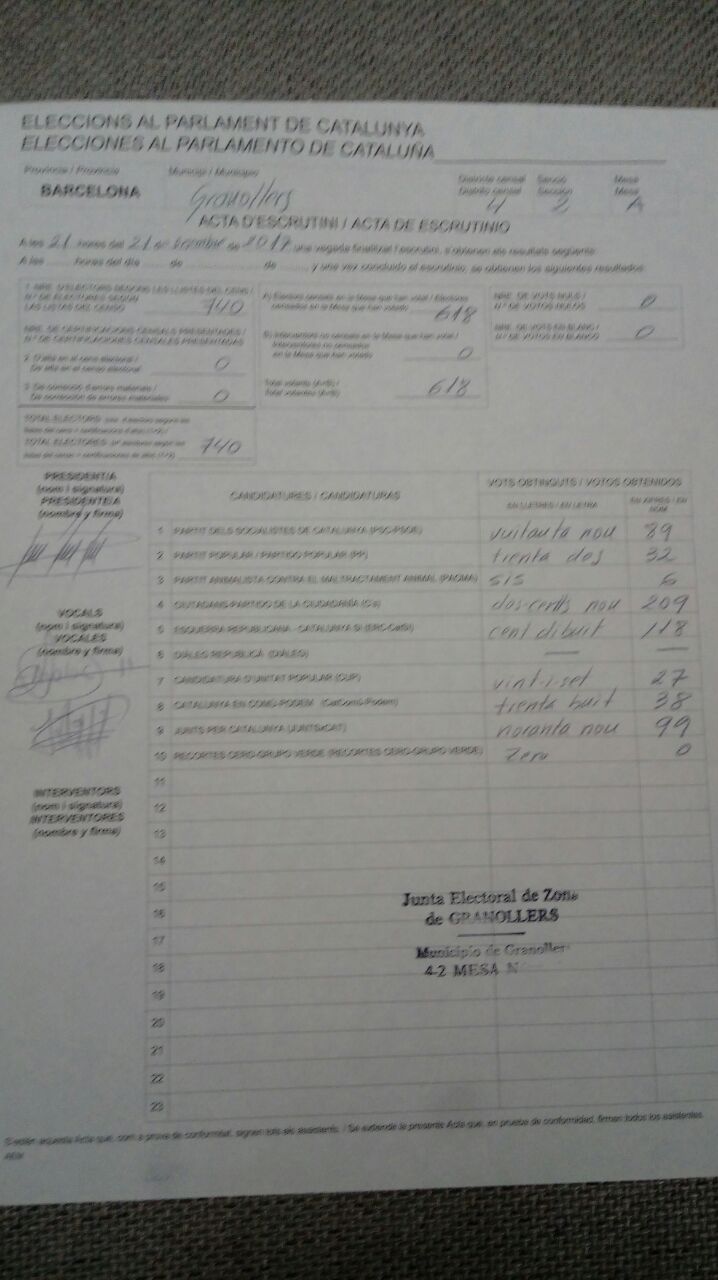 ELECCIONS AL PARLAMENT DE CATALUNYA
ELECCIONES AL PARLAMENTO DE CATALUÑA
Província / Provincia Municipi / Municipio Districte censal Secció Mesa
Distrito censal Sección Mesa
BARCELONA Granollers 4 2 A
ACTA D'ESCRUTINI / ACTA DE ESCRUTINIO
A les 21 hores del 21 de desembre de 2017, una vegada finalitzat l'escrutini, s'obtenen els resultats següents:
A las ...... horas del día ...... de ...... de ...... y una vez concluido el escrutinio, se obtienen los siguientes resultados:
1. NRE. D'ELECTORS SEGONS LES LLISTES DEL CENS /
N.º DE ELECTORES SEGÚN
LAS LISTAS DEL CENSO 740
NRE. DE CERTIFICACIONS CENSALS PRESENTADES /
N.º DE CERTIFICACIONES CENSALES PRESENTADAS
2. D'alta en el cens electoral /
De alta en el censo electoral 0
3. De correcció d'errors materials /
De corrección de errores materiales 0
TOTAL ELECTORS
TOTAL ELECTORES 740
A) Electors censats en la Mesa que han votat / Electores
censados en la Mesa que han votado 618
B) Interventors no censats en la Mesa que han votat /
Interventores no censados
en la Mesa que han votado 0
Total votants (A+B) /
Total votantes (A+B) 618
NRE. DE VOTS NULS /
N.º DE VOTOS NULOS 0
NRE. DE VOTS EN BLANC /
N.º DE VOTOS EN BLANCO 0
PRESIDENT/A
(nom i signatura)
PRESIDENTE/A
(nombre y firma)
VOCALS
(nom i signatura)
VOCALES
(nombre y firma)
INTERVENTORS
(nom i signatura)
INTERVENTORES
(nombre y firma)
CANDIDATURES / CANDIDATURAS VOTS OBTINGUTS / VOTOS OBTENIDOS
EN LLETRES / EN LETRA EN XIFRES / EN NÚM.
1 PARTIT DELS SOCIALISTES DE CATALUNYA (PSC-PSOE) vuitanta nou 89
2 PARTIT POPULAR / PARTIDO POPULAR (PP) trenta dos 32
3 PARTIT ANIMALISTA CONTRA EL MALTRACTAMENT ANIMAL (PACMA) sis 6
4 CIUTADANS-PARTIDO DE LA CIUDADANÍA (C's) dos-cents nou 209
5 ESQUERRA REPUBLICANA - CATALUNYA SÍ (ERC-CatSí) cent dibuit 118
6 DIÀLEG REPÚBLICA (DIÀLEG) — —
7 CANDIDATURA D'UNITAT POPULAR (CUP) vint-i-set 27
8 CATALUNYA EN COMÚ-PODEM (CatComú-Podem) trenta buit 38
9 JUNTS PER CATALUNYA (JUNTSxCAT) noranta nou 99
10 RECORTES CERO-GRUPO VERDE (RECORTES CERO-GRUPO VERDE) Zero 0
11
12
13
14
15
16
17
18
19
20
21
22
23
Junta Electoral de Zona
de GRANOLLERS
Municipio de Granollers
4-2 MESA
S'estén aquesta Acta que, com a prova de conformitat, signen tots els assistents. / Se extiende la presente Acta que, en prueba de conformidad, firman todos los asistentes.